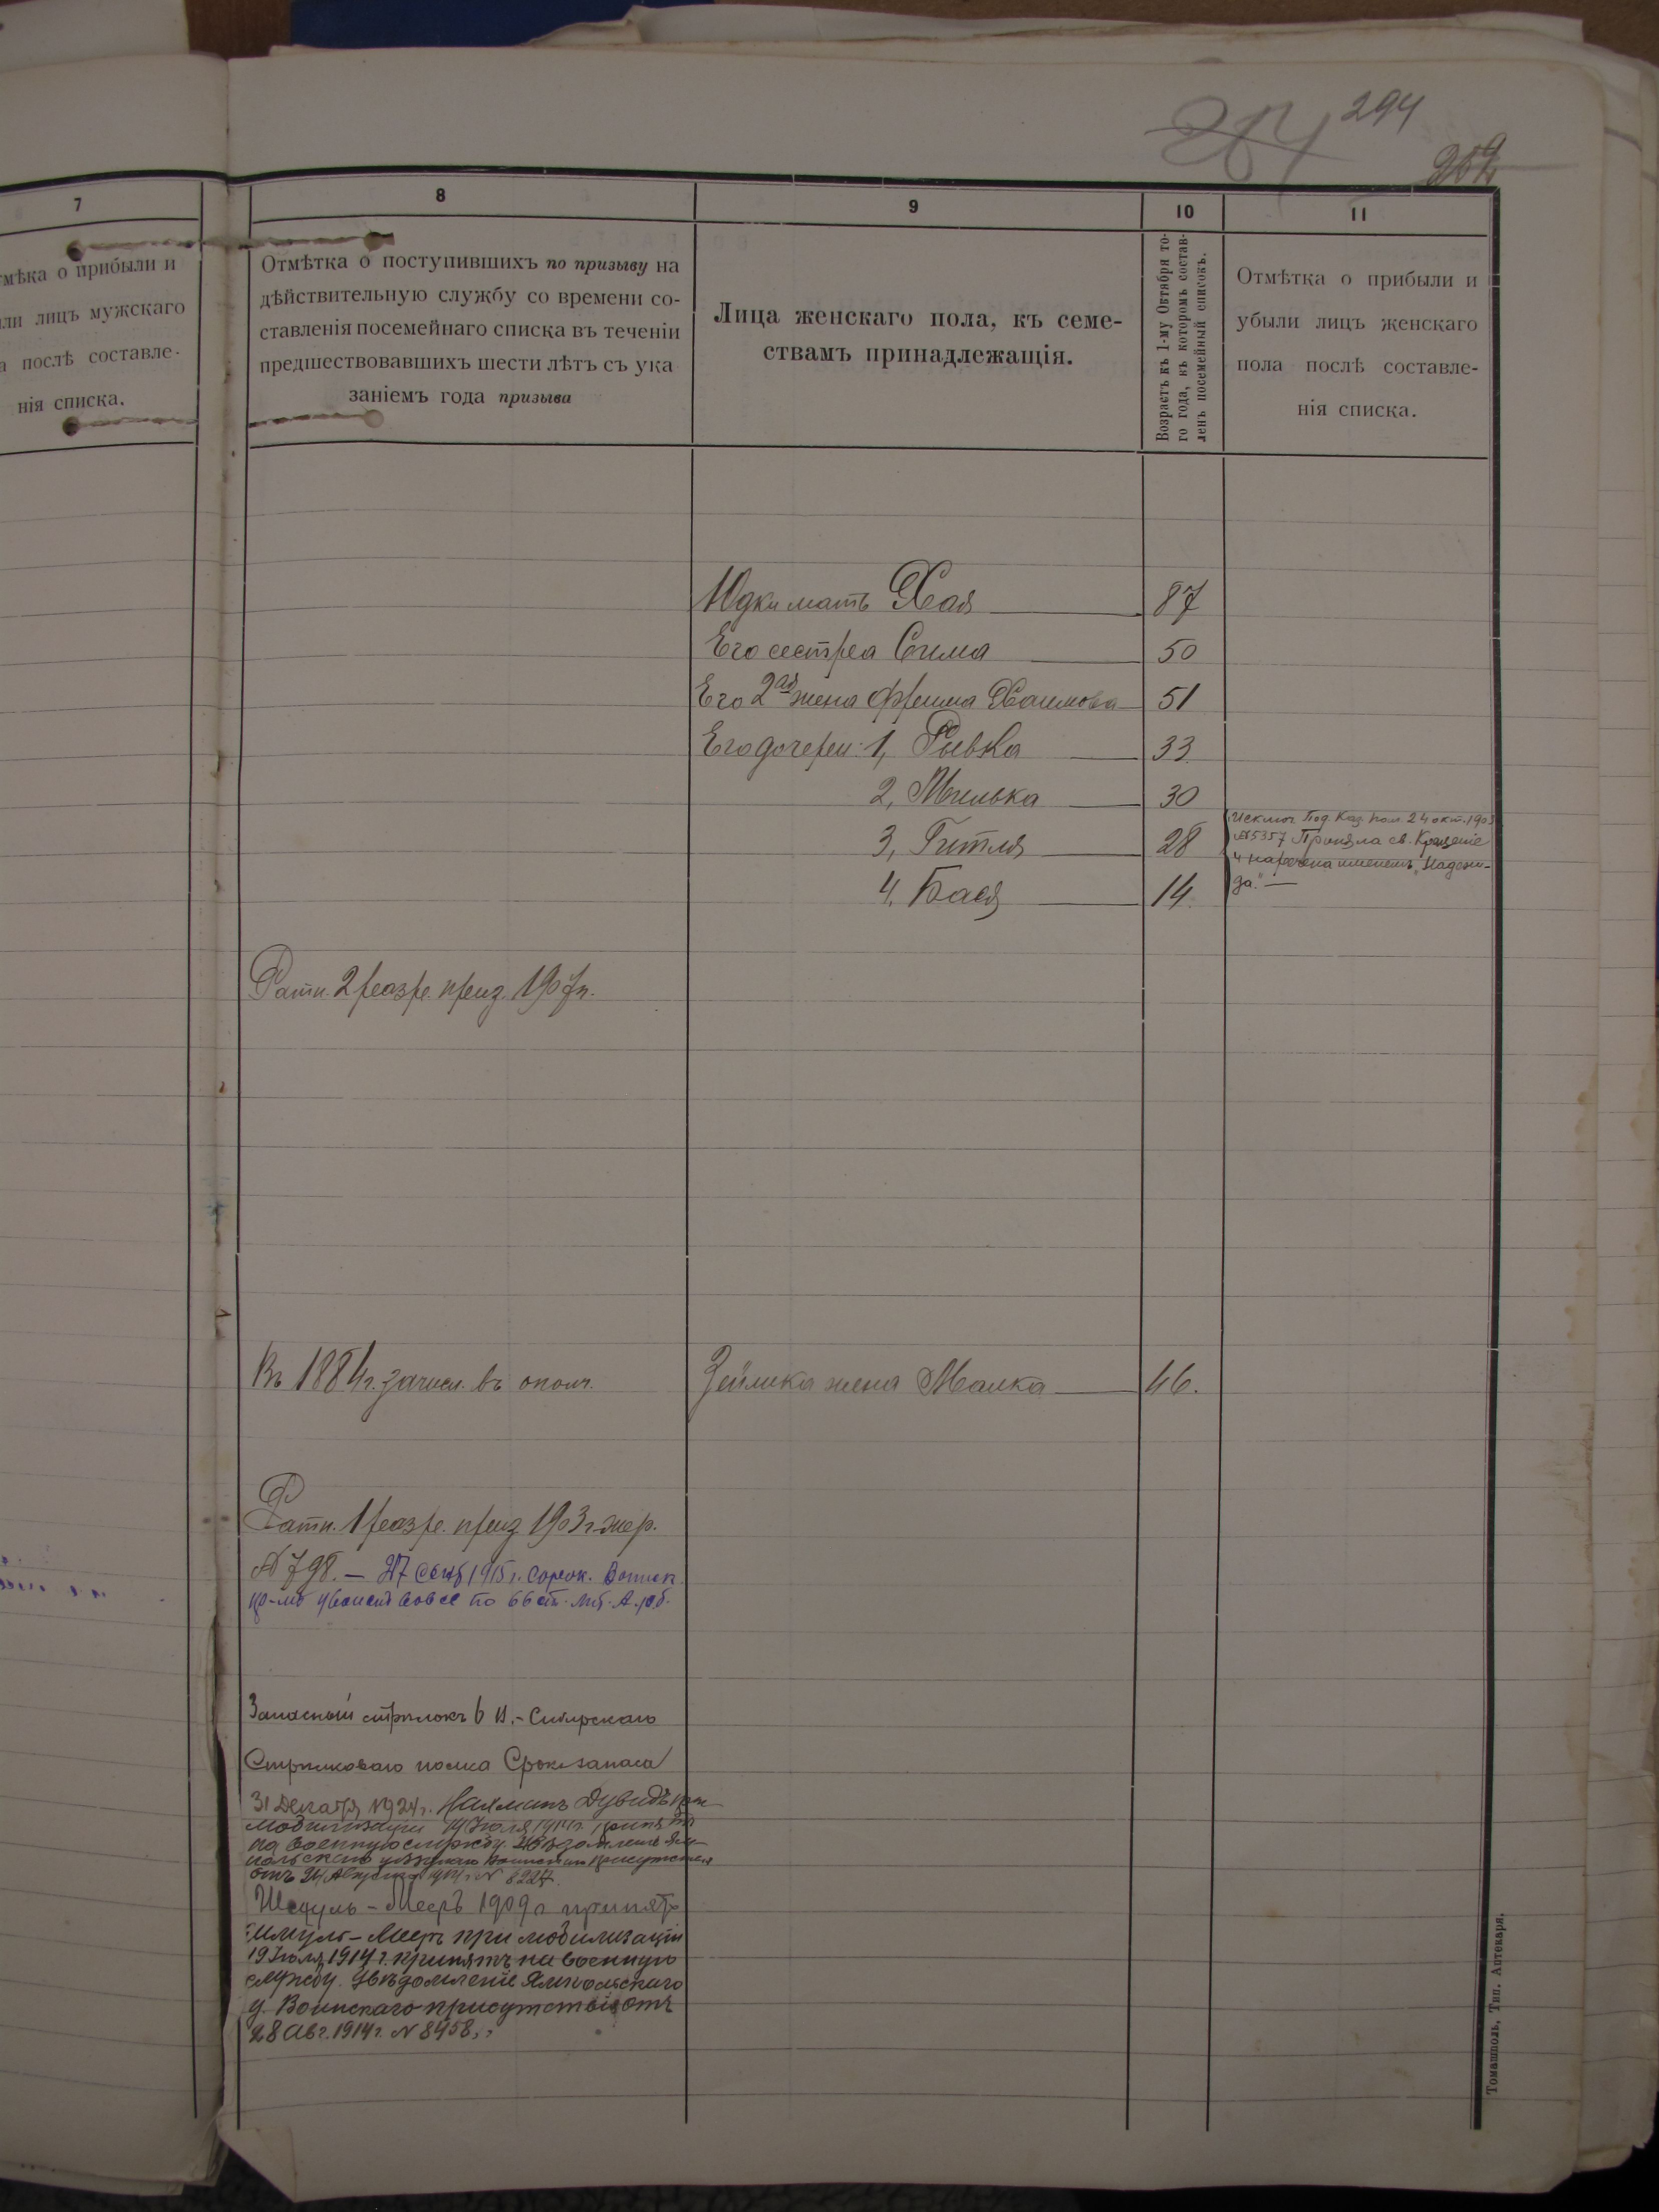 294
284
7
8
9
10
11
тмѣка о прибыли и
ли лицъ мужскаго
а послѣ составле-
нія списка.
Отмѣтка о поступившихъ по призыву на
дѣйствительную службу со времени со-
ставленія посемейнаго списка въ теченіи
предшествовавшихъ шести лѣтъ съ ука
заніемъ года призыва
Лица женскаго пола, къ семе-
ствамъ принадлежащія.
Возрастъ къ 1-му Октября то-
го года, къ которомъ состав-
ленъ посемейный списокъ.
Отмѣтка о прибыли и
убыли лицъ женскаго
пола послѣ составле-
нія списка.
Юдки мать Хая 87
Его сестра Сима 50
Его 2ая жена Фрима Хаимова 51
Его дочери: 1, Рывка 33
2, Милька 30
3, Гитля 28
4, Бася 14.
Исключ. Под. Каз. Пол. 24 окт. 1903
№5357 Приняла св. Крещеніе
и наречена именемъ "Надеж-
да." —
Ратн. 2 разр. приз. 1907г.
Въ 1884г. зачисл. въ ополч.
Зейлика жена Малка 46.
Ратн. 1 разр. приз 1903г. жер.
№ 798. — 27 Сент 1915г. Сорок. Воинск.
по 66 ст. лит. А.
Запасный стрѣлокъ 6 В.-Сибирскаго
Стрѣлковаго полка Срокъ запаса
31 Декабря 1924г. Нахманъ Дувидъ при
мобилизаціи 19 Іюля 1914г. принятъ
на военную службу. Увѣдомленіе Ям-
польскаго уѣзднаго Воинскаго присутствія
отъ 24 Августа 1914г. № 8227.
Мееръ 1909г принятъ
Меер при мобилизаціи
19 Іюля 1914г. принятъ на военную
службу. Увѣдомленіе Ямпольскаго
у. Воинскаго присутствія отъ
28 Авг. 1914г. № 8458.
Томашполь, Тип. Аптекаря.